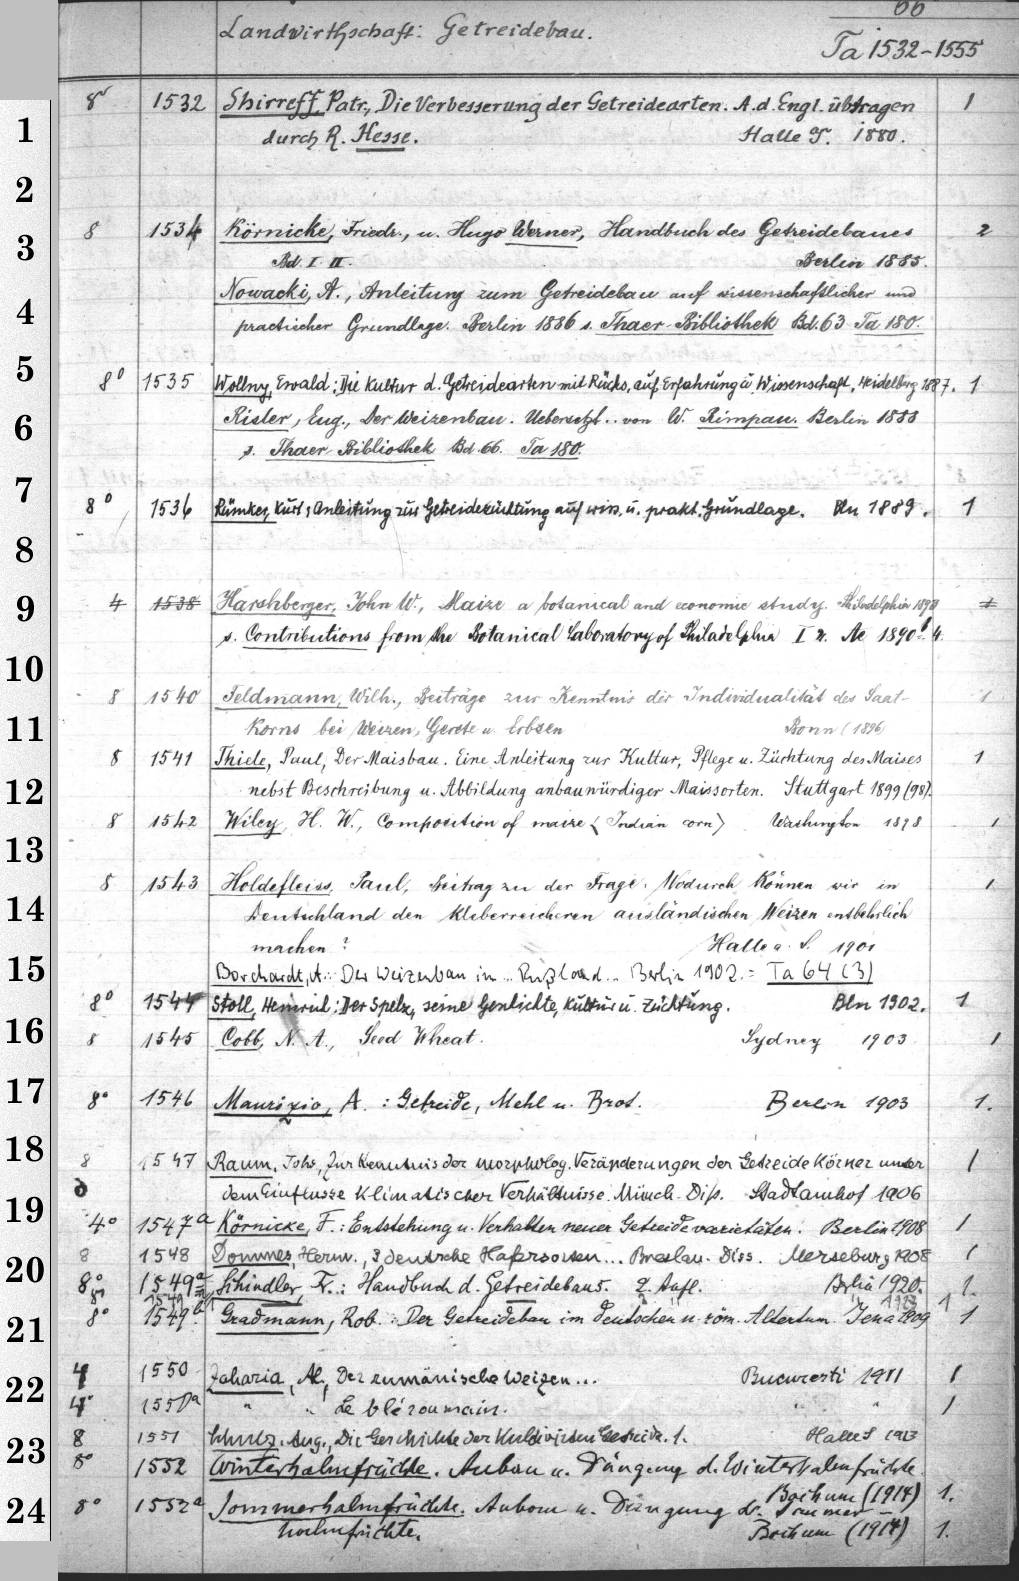 66
Landwirthschaft: Getreidebau.
Ta 1532-1555
8° 1532 Shirreff, Patr., Die Verbesserung der Getreidearten. A. d. Engl. übtragen 1
1 durch R. Hesse. Halle S. 1880.
2
8 1534 Körnicke, Friedr., u. Hugo Werner, Handbuch des Getreidebaues 2
3 Bd. I. II. Berlin 1885.
Nowacki, A., Anleitung zum Getreidebau auf wissenschaftlicher und
4 practischer Grundlage. Berlin 1886 s. Thaer-Bibliothek Bd. 63 Ta 180.
5 8° 1535 Wollny, Ewald: Die Kultur d. Getreidearten mit Rücks. auf Erfahrung u. Wissenschaft. Heidelberg 1887. 1
6 Risler, Eug., Der Weizenbau. Uebersetzt.. von W. Rimpau. Berlin 1888
s. Thaer-Bibliothek Bd. 66. Ta 180.
7 8° 1536 Rümker, Kurt: Anleitung zur Getreidezüchtung auf wiss. u. prakt. Grundlage. Bln 1889. 1
8
9 4 1538 Harshberger, John W., Maize a botanical and economic study. Philadelphia 1893 1
s. Contributions from the Botanical Laboratory of Philadelphia I 2. Ae 1890 b 4.
10
8 1540 Feldmann, Wilh., Beiträge zur Kenntnis der Individualität des Saat-
11 korns bei Weizen, Gerste u. Erbsen Bonn (1896) 1
8 1541 Thiele, Paul, Der Maisbau. Eine Anleitung zur Kultur, Pflege u. Züchtung des Maises 1
12 nebst Beschreibung u. Abbildung anbauwürdiger Maissorten. Stuttgart 1899 (98).
8 1542 Wiley, H. W., Composition of maize < Indian corn > Washington 1898 1
13
8 1543 Holdefleiss, Paul, Beitrag zu der Frage: Wodurch können wir in 1
14 Deutschland den kleberreicheren ausländischen Weizen entbehrlich
machen? Halle a. S. 1901
15 Borchardt, A.: Der Weizenbau in .. Rußland .. Berlin 1902. = Ta 64 (3)
8° 1544 Stoll, Heinrich: Der Spelz, seine Geschichte, Kultur u. Züchtung. Bln 1902. 1
16 8 1545 Cobb, N. A., Seed Wheat. Sydney 1903 1
17 8° 1546 Maurizio, A.: Getreide, Mehl u. Brot. Berlin 1903 1.
18 8 1547 Raum, Johs, Zur Kenntnis der morpholog. Veränderungen der Getreide Körner unter 1
dem Einflusse klimatischer Verhältnisse. Münch. Diss. Stadtamhof 1906
19 4° 1547a Körnicke, F.: Entstehung u. Verhalten neuer Getreidevarietäten. Berlin 1908 1
20 8 1548 Dommes, Herm., 3 deutsche Hafersorten... Breslau. Diss. Merseburg 1908 1
8° 1549a Schindler, Fr.: Handbuch d. Getreidebaus. 2. Aufl. Berlin 1920. 1.
21 8° 1549b Gradmann, Rob.: Der Getreidebau im deutschen u. röm. Altertum. Jena 1909 1
22 4 1550 Zaharia, Al., Der rumänische Weizen... Bucuresti 1911 1
4° 1550a " " Le blé roumain. " " 1
23 8 1551 Schulz, Aug., Die Geschichte der kultivierten Getreide. 1. Halle S 1913
8° 1552 Winterhalmfrüchte. Anbau u. Düngung d. Winterhalmfrüchte.
Bochum (1914) 1.
24 8° 1552a Sommerhalmfrüchte. Anbau u. Düngung d. Sommer-
halmfrüchte. Bochum (1914) 1.